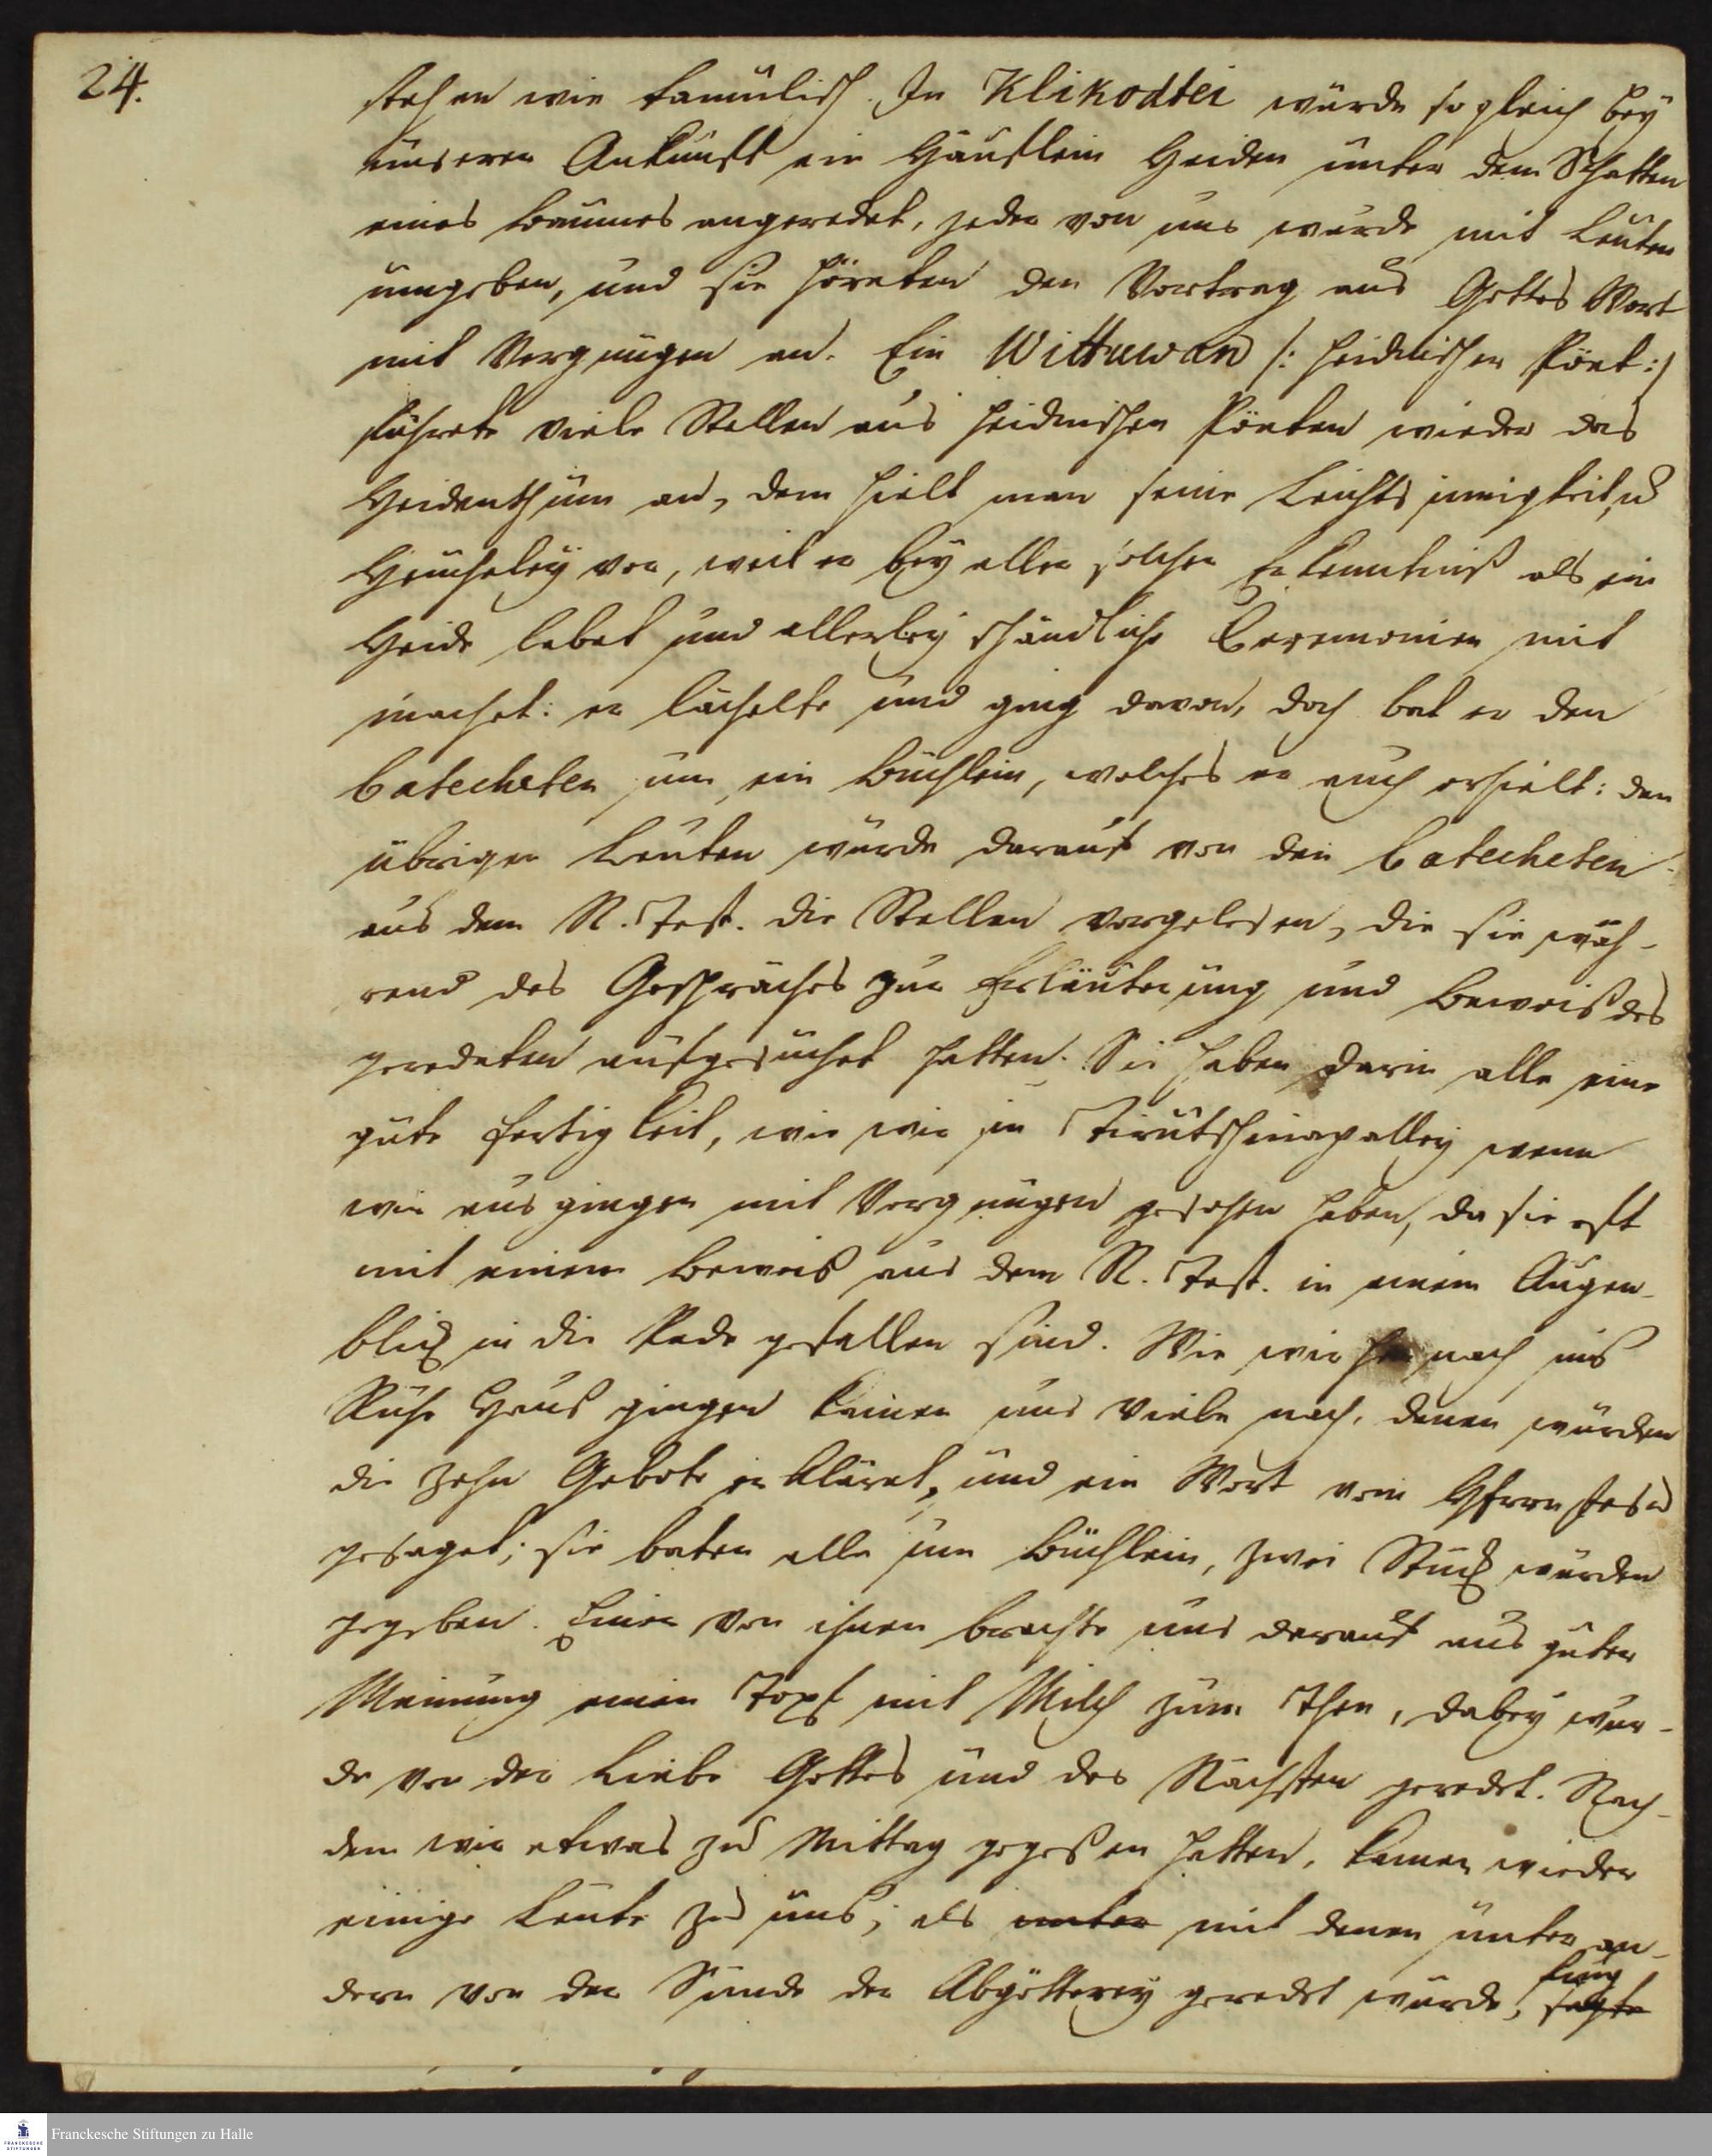 24.
stehen wie tamulisch. In Klikodtei wurde sogleich bey
unserer Ankunft ein Häuflein Heiden unter dem Schatten
eines Baumes angeredet, jeder von uns wurde mit Leuten
umgeben, und sie höreten den Vortrag aus Gottes Wort
mit Vergnügen an. Ein Wittuwan /: heidnischer Poet :/
führete viele Stellen aus heidnischen Poeten wieder das
Heidenthum an, dem hielt man seine Leichtsinnigkeit u
Heucheley vor, weil er bey aller solcher Erkenntniß als ein
Heide lebet und allerley schändliche Ceremonien mit
machet: er lächelte und ging davon, doch bat er den
Catecheten um ein Büchlein, welches er auch erhielt: den
übrigen Leuten wurde darauf von den Catecheten
aus dem N. Test. die Stellen vorgelesen, die sie wäh-
rend des Gespräches zur Erläuterung und Beweiß des
geredeten aufgesuchet hatten. Sie haben darin alle eine
gute Fertigkeit, wie wir in Tirutschinapalley wenn
wir ausgingen mit Vergnügen gesehen haben, da sie oft
mit einem Beweis aus dem N. Test. in einem Augen-
blick in die Rede gefallen sind. Wie wir hernach ins
Ruhe Haus gingen kamen uns viele nach, denen wurden
die zehn Gebote erkläret, und ein Wort vom Herrn Jesu
gesaget; sie baten alle um Büchlein, zwei Stück wurden
gegeben. Einer von ihnen brachte uns darauf aus guter
Meinung einen Topf mit Milch zum Thee, dabey wur-
de von der Liebe Gottes und des Nächsten geredet. Nach-
dem wir etwas zu Mittag gegeßen hatten, kamen wieder
einige Leute zu uns; als unter mit denen unter an-
dern von der Sünde der Abgötterey geredet wurde, fing
sagte
Franckesche Stiftungen zu Halle
FRANCKESCHE STIFTUNGEN